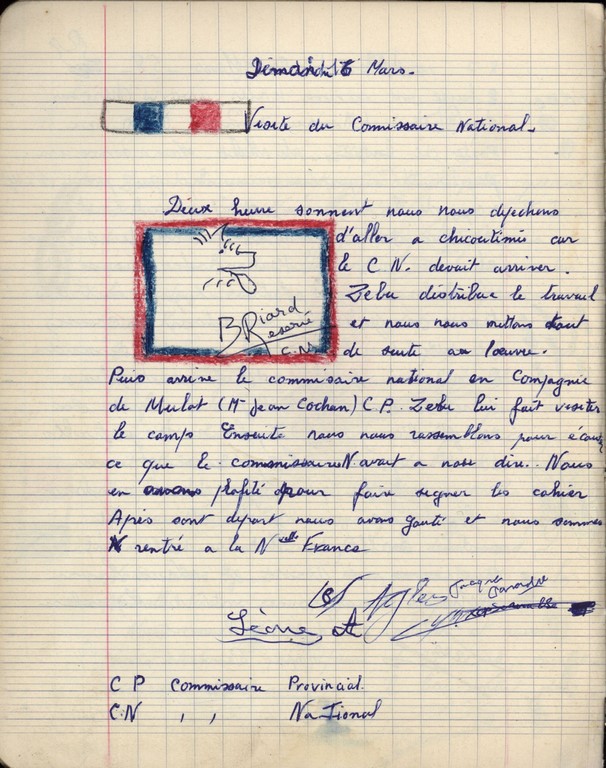 Dimanche 6 Mars.
Visite du Comissaire National.
Deux heure sonnent nous nous dépechons
d'aller a chicoutimis car
le C N. devait arriver.
Zebu distribue le travail
et nous nous mettons tout
de suite au l'oeuvre.
Briard
Reservé
C.N.
Puis arrive le commissaire national en Compagnie
de Mulot (Mr Jean Cochan) C P. Zebu lui fait visiter
le camp Ensuite nous nous rassemblons pour écouter
ce que le commissaire N. avait a nose dire.. Nous
en avons profité pour faire signer les cahier
Après sont depart nous avons gouté et nous sommes
rentré a la Nelle France
C P Commissaire Provincial.
C.N , , National